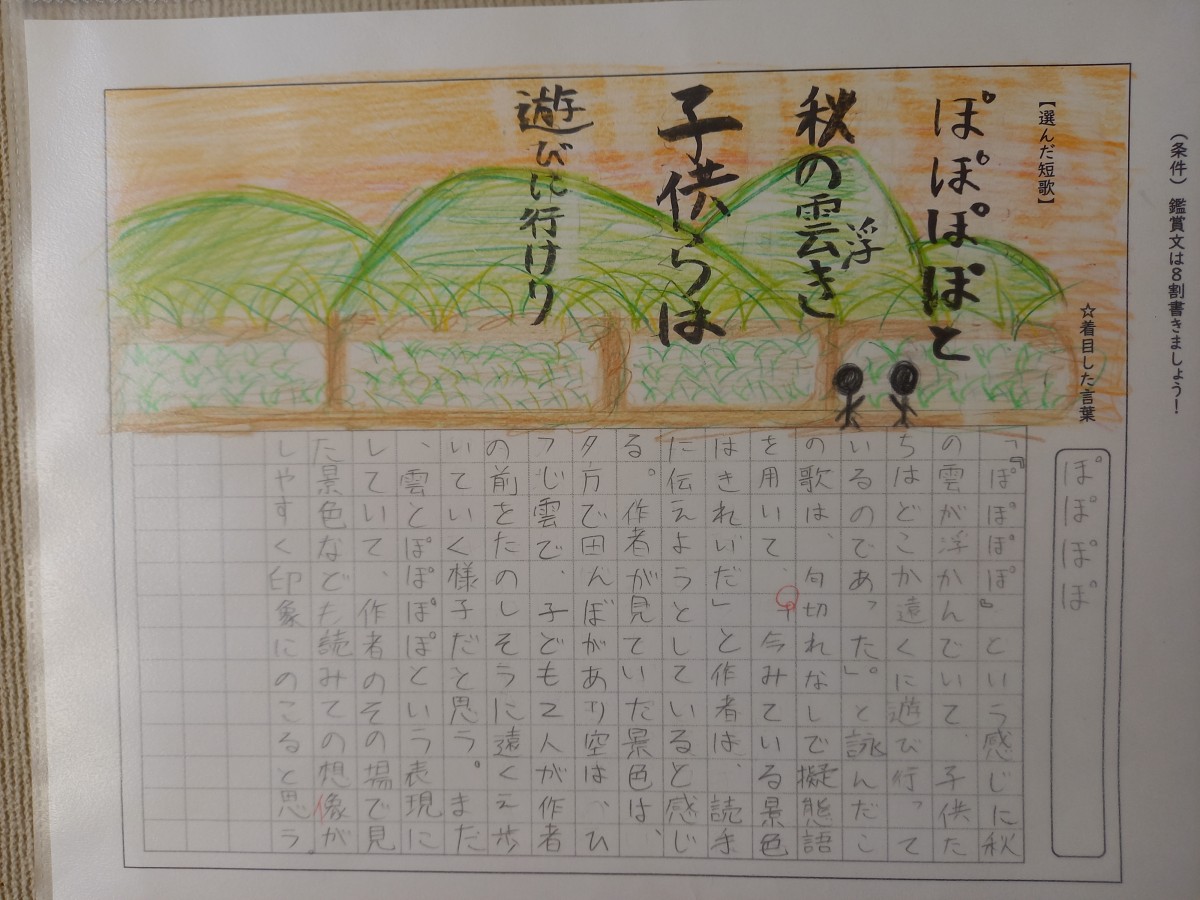 (条件)鑑賞文は8割書きましょう!
☆着目した言葉
ぽぽぽぽ
【選んだ短歌】
ぽぽぽぽと
秋の雲浮き
子供らは
遊びに行けり
「『ぽぽぽぽ』という感じに秋
の雲が浮かんでいて、子供た
ちはどこか遠くに遊び行って
いるのであった」。と詠んだこ
の歌は、句切れなしで擬態語
を用いて、「今みている景色
はきれいだ」と作者は、読手
に伝えようとしていると感じ
る。作者が見ていた景色は、
夕方で田んぼがあり空は、ひ
つじ雲で、子ども2人が作者
の前をたのしそうに遠くえ歩
いていく様子だと思う。まだ
、雲とぽぽぽぽという表現に
していて、作者のその場で見
た景色なども読みての想像が
しやすく印象にのこると思う。